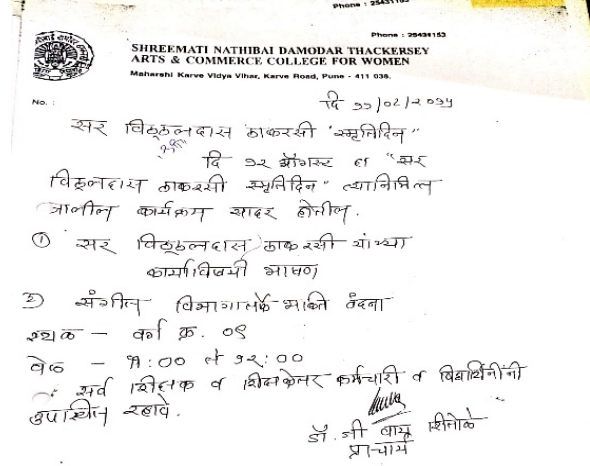 Phone : 25431153
Phone : 25431153
SHREEMATI NATHIBAI DAMODAR THACKERSEY
ARTS & COMMERCE COLLEGE FOR WOMEN
Maharshi Karve Vidya Vihar, Karve Road, Pune - 411 038.
No. :
दि ११/०८/२०१५
सर विठ्ठलदास ठाकरसी "स्मृतिदिन"
दि १२ ऑगस्ट हा "सर
विठ्ठलदास ठाकरसी स्मृतिदिन" त्यानिमित्त
खालील कार्यक्रम सादर होतील.
① सर विठ्ठलदास ठाकरसी यांच्या
कार्याविषयी भाषण
२) संगीत विभागातर्फे भक्ति वंदना
स्थळ – वर्ग क्र. ०९
वेळ – ११:०० ते १२:००
सर्व शिक्षक व शिक्षकेतर कर्मचारी व विद्यार्थिनींनी
उपस्थित रहावे.
डॉ.
प्राचार्य